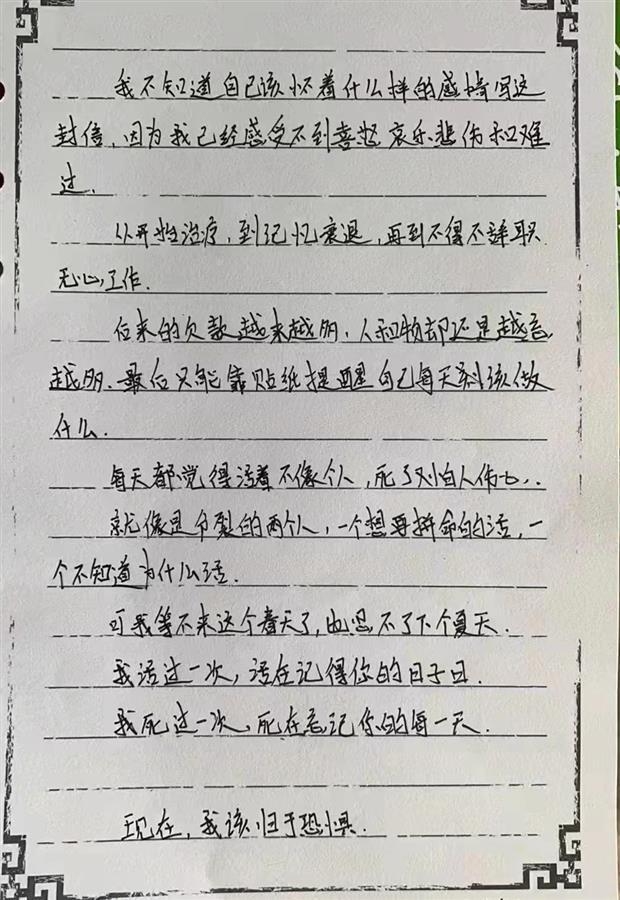 我不知道自己该怀着什么样的感情写这
封信，因为我已经感受不到喜怒哀乐悲伤和难
过.
从开始治疗，到记忆衰退，再到不得不辞职
无心工作.
后来的欠款越来越多，人和物却还是越忘
越多.最后只能靠贴纸提醒自己每天到该做
什么.
每天都觉得活着不像个人，死了又怕人伤心..
就像是分裂的两个人，一个想要拼命的活，一
个不知道为什么活.
可我等不来这个春天了，也见不了下个夏天.
我活过一次，活在记得你的日子日.
我死过一次，死在忘记你的每一天.
现在，我该归于恐惧.